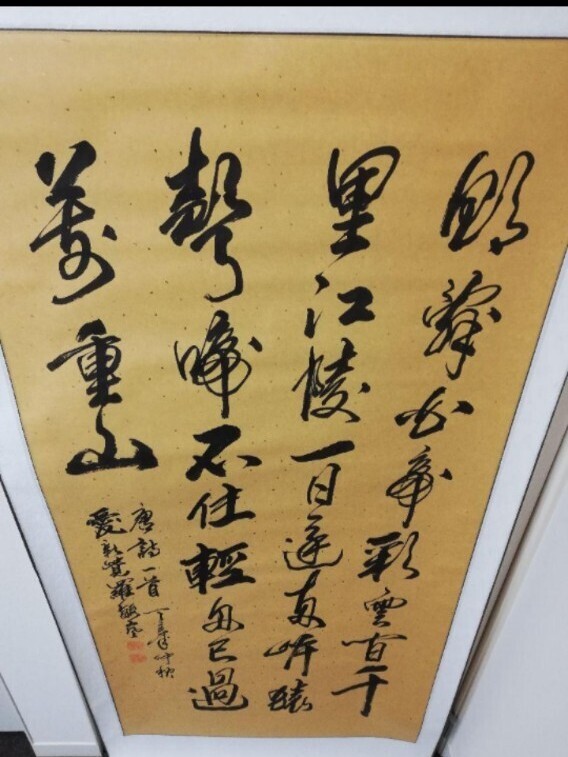 朝辭白帝彩雲间千
里江陵一日還两岸猿
聲啼不住輕舟已過
萬重山
唐詩一首 丁亥年仲秋
愛新覺羅